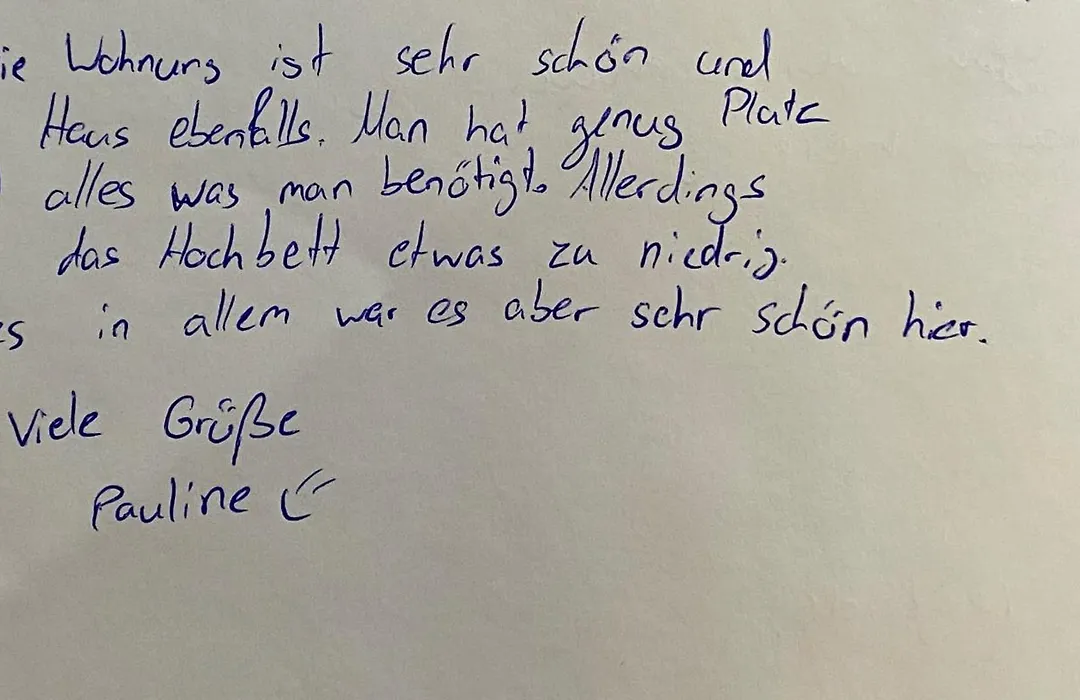 ie Wohnung ist sehr schön und
Haus ebenfalls. Man hat genug Platz
alles was man benötigt. Allerdings
das Hochbett etwas zu niedrig.
es in allem war es aber sehr schön hier.
Viele Grüße
Pauline